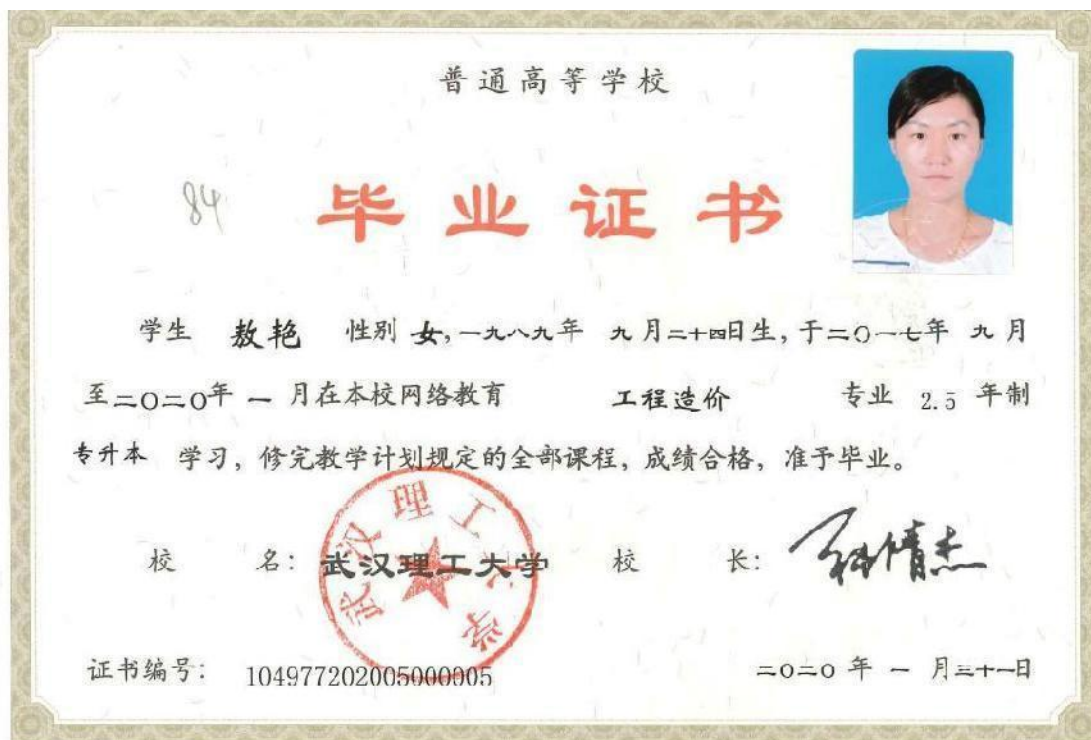 普通高等学校
84
毕业证书
学生 敖艳 性别 女,一九八九年 九月二十四日生,于二〇一七年 九月
至二〇二〇年 一 月在本校网络教育 工程造价 专业 2.5 年制
专升本 学习，修完教学计划规定的全部课程，成绩合格，准予毕业。
校 名：武汉理工大学 校 长：
武汉理工大学
证书编号： 104977202005000005 二〇二〇 年 一 月三十一日